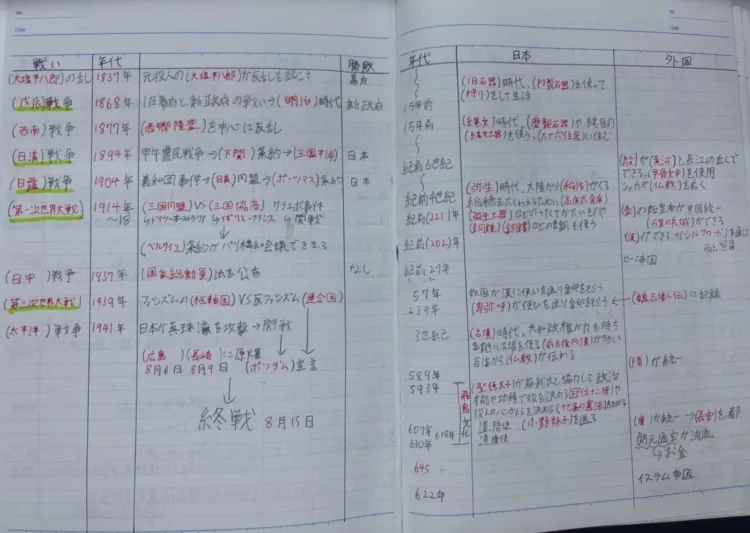 戦い 年代 勝敗
(大塩平八郎)の乱 1837年 元役人の(大塩平八郎)が反乱を起こす 幕府
(戊辰)戦争 1868年 旧幕府と新政府の争いう(明治)時代 新政府
(西南)戦争 1877年 (西郷隆盛)を中心に反乱
(日清)戦争 1894年 甲午農民戦争→(下関)条約→(三国干渉) 日本
(日露)戦争 1904年 義和団事件→(日英)同盟→(ポーツマス)条約 日本
(第一次世界大戦) 1914年 (三国同盟)VS(三国協商) サラエボ事件
~18 →ドイツ・オーストラリア →イギリス・フランス →開戦
(ベルサイユ)条約がパリ講和会議でできる
(日中)戦争 1937年 (国家総動員)法を公布 なし
(第一次世界大戦) 1939年 ファシズムの(枢軸国)VS反ファシズム(連合国)
(太平洋)戦争 1941年 日本が真珠湾を攻撃→開戦
(広島)(長崎)に原爆
8月6日 8月9日 (ポツダム)宣言
終戦 8月15日
年代 日本 外国
(旧石器)時代、(打製石器)を使って
(狩り)をして生活
15年前
15年前 (縄文)時代、(磨製石器)や縄目の
(縄文土器)を使う、(たて穴住居)に住む
紀前6世紀 (殷)が(黄河)と長江の辺で
できる、(甲骨文字)を使用
シャカが(仏教)を広く
紀前4世紀 (弥生)時代、大陸から(稲作)がくる
(高床式倉庫)
紀前(221)年 (弥生土器)などのうすくてかたいものや (秦)の始皇帝が中国統一
(銅鏡)(銅鐸)などの青銅も使う (万里の長城)ができる
紀前(202)年 (漢)ができる→(シルクロード)を通じ
西と貿易
紀前27年 ローマ帝国
57年 奴国が漢に使いを送り金印をもらう
239年 (卑弥呼)が使いを送り金印をもらう ←(魏志倭人伝)に記録
3世紀 (古墳)時代。大和政権が力を持ち
各地に古墳を作る(前方後円墳)が多い
百済から(仏教)が伝わる
589年 (隋)が統一
593年 (聖徳太子)が蘇我氏と協力して政治
飛鳥文化 才能や功績で役を決める(冠位十二階)や
役人の心がまえを決める(十七条の憲法)を決める
607年 遣隋使 (小野妹子)を送る
618年 (唐)が統一→(長安)を都
630年 遣唐使 開元通宝が流通
→お金
645
622年 イスラム帝国